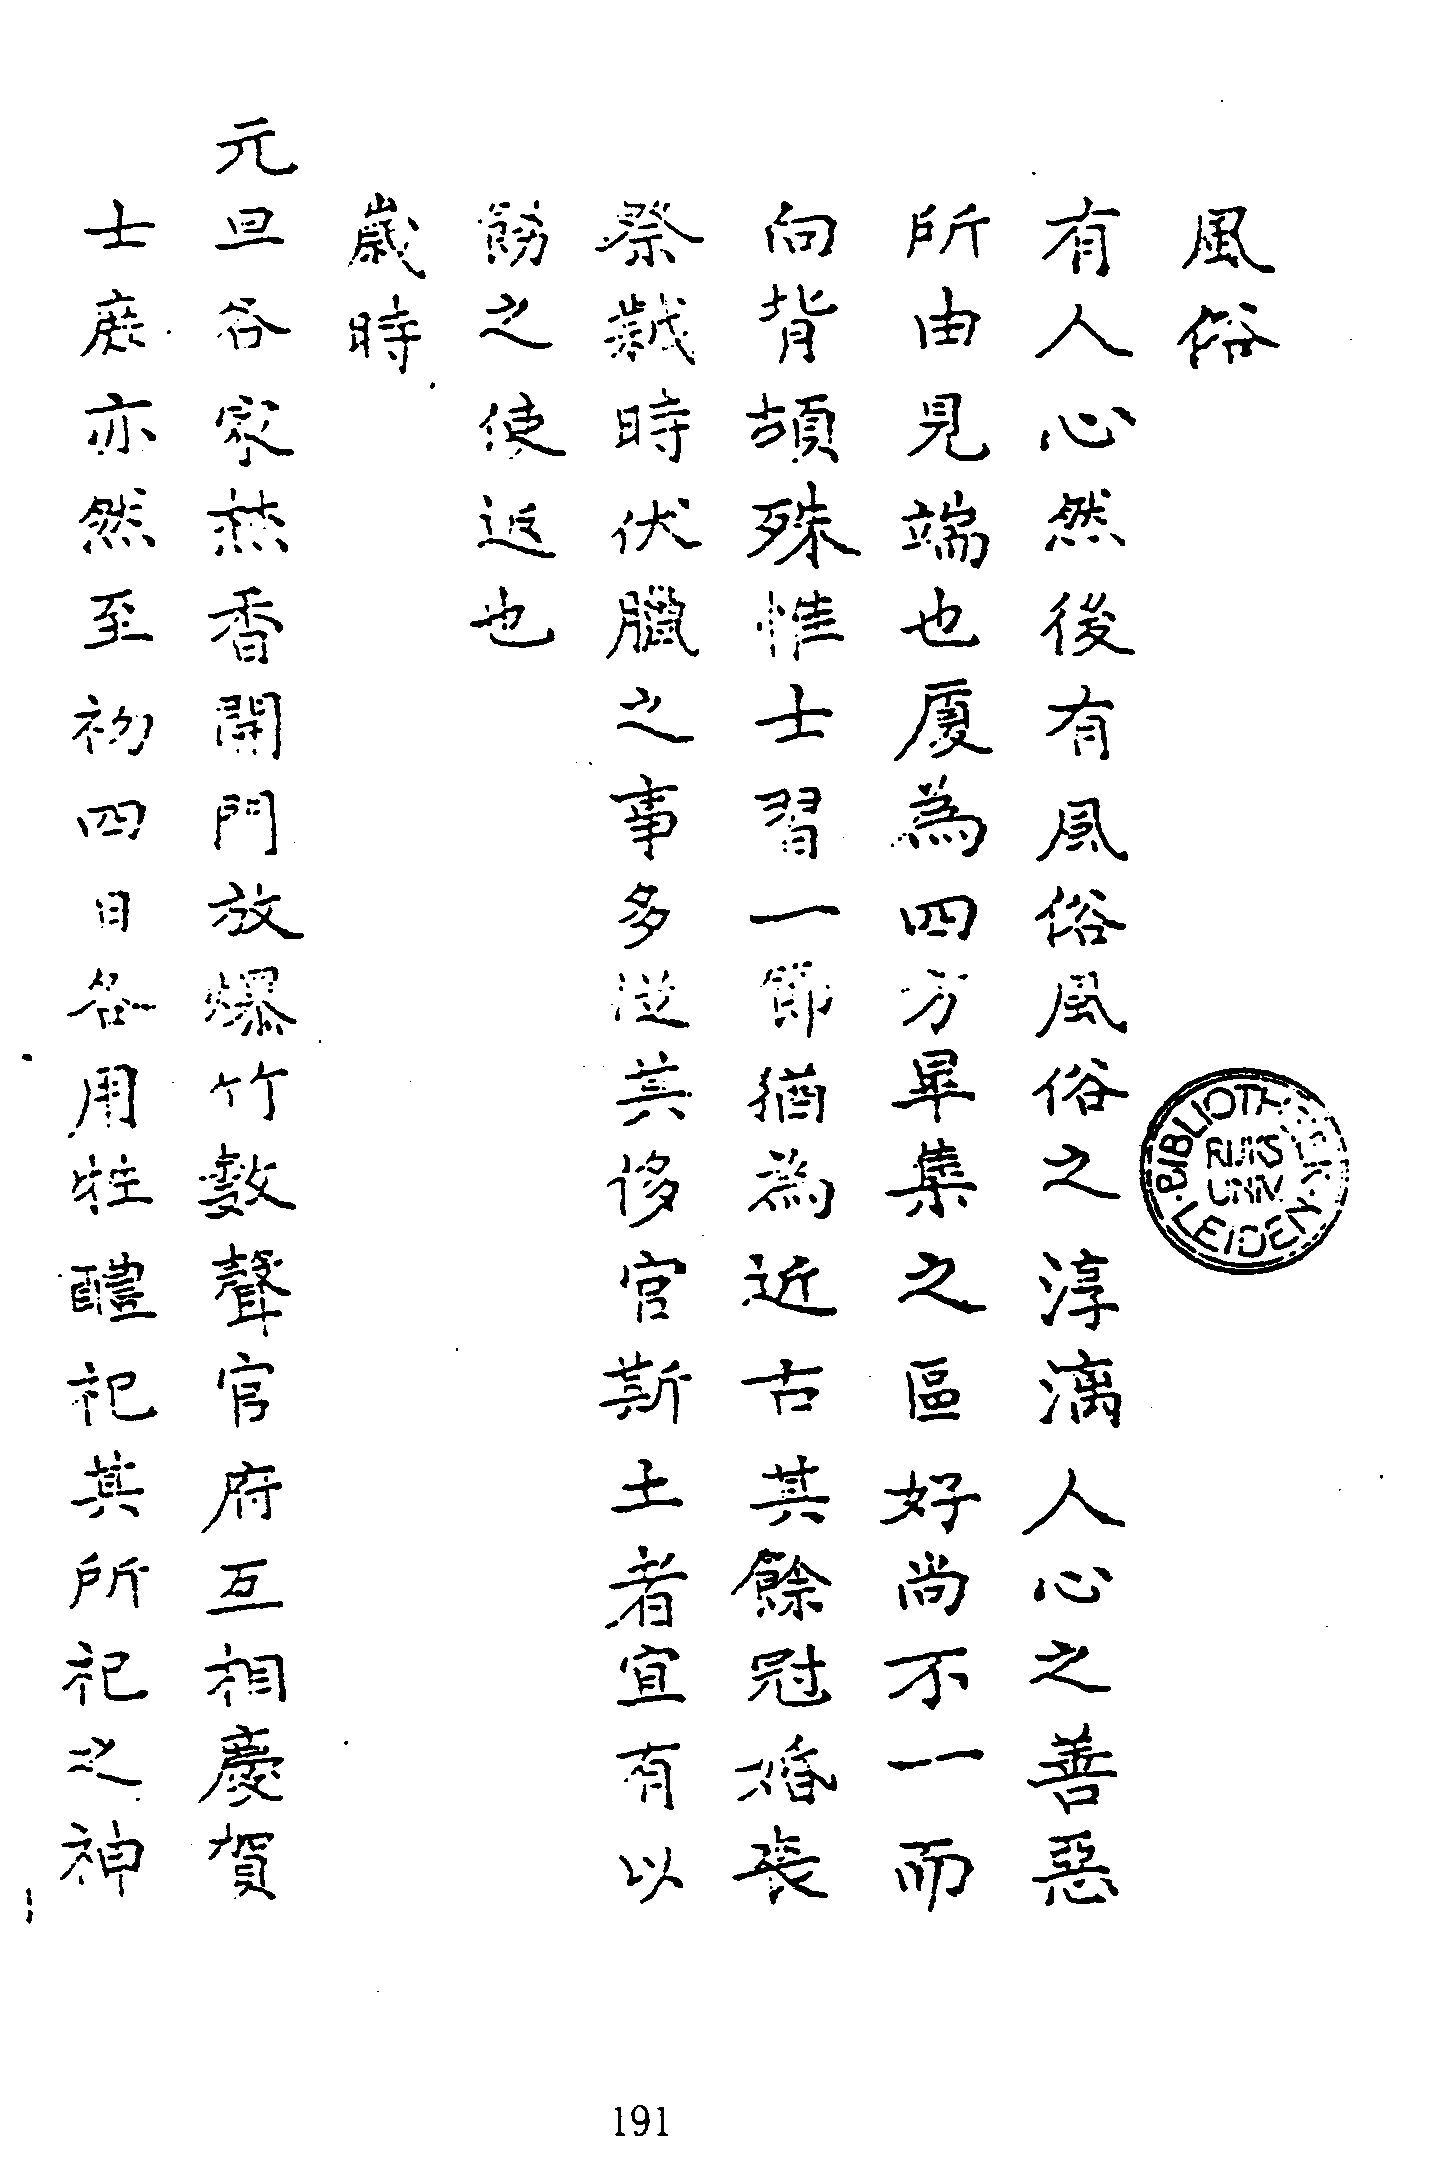 風俗
有人心然後有風俗風俗之淳漓人心之善惡
所由見端也厦為四方畢集之區好尚不一而
向背頓殊惟士習一節猶為近古其餘冠婚喪
祭歲時伏臘之事多從其侈官斯土者宜有以
飭之使返也
歲時
元旦各家焚香開門放爆竹數聲官府互相慶賀
士庶亦然至初四日各用牲醴祀其所祀之神
BIBLIOTHEEK RIJKS UNIV. LEIDEN
191